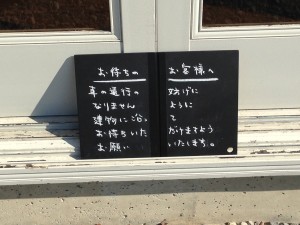 お待ちの お客様へ
車の通行の 妨げに
なりません ように
建物に沿っ て
お待ちいた だけますよう
お願い いたします。